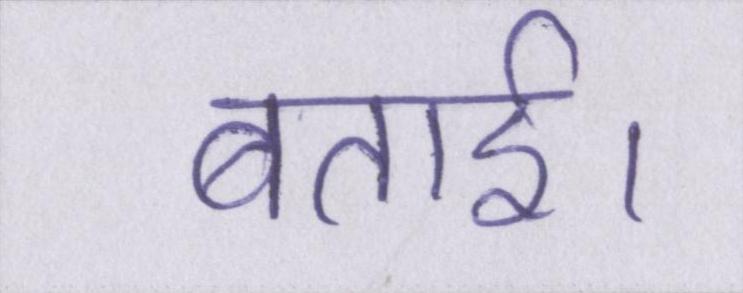 बताई।